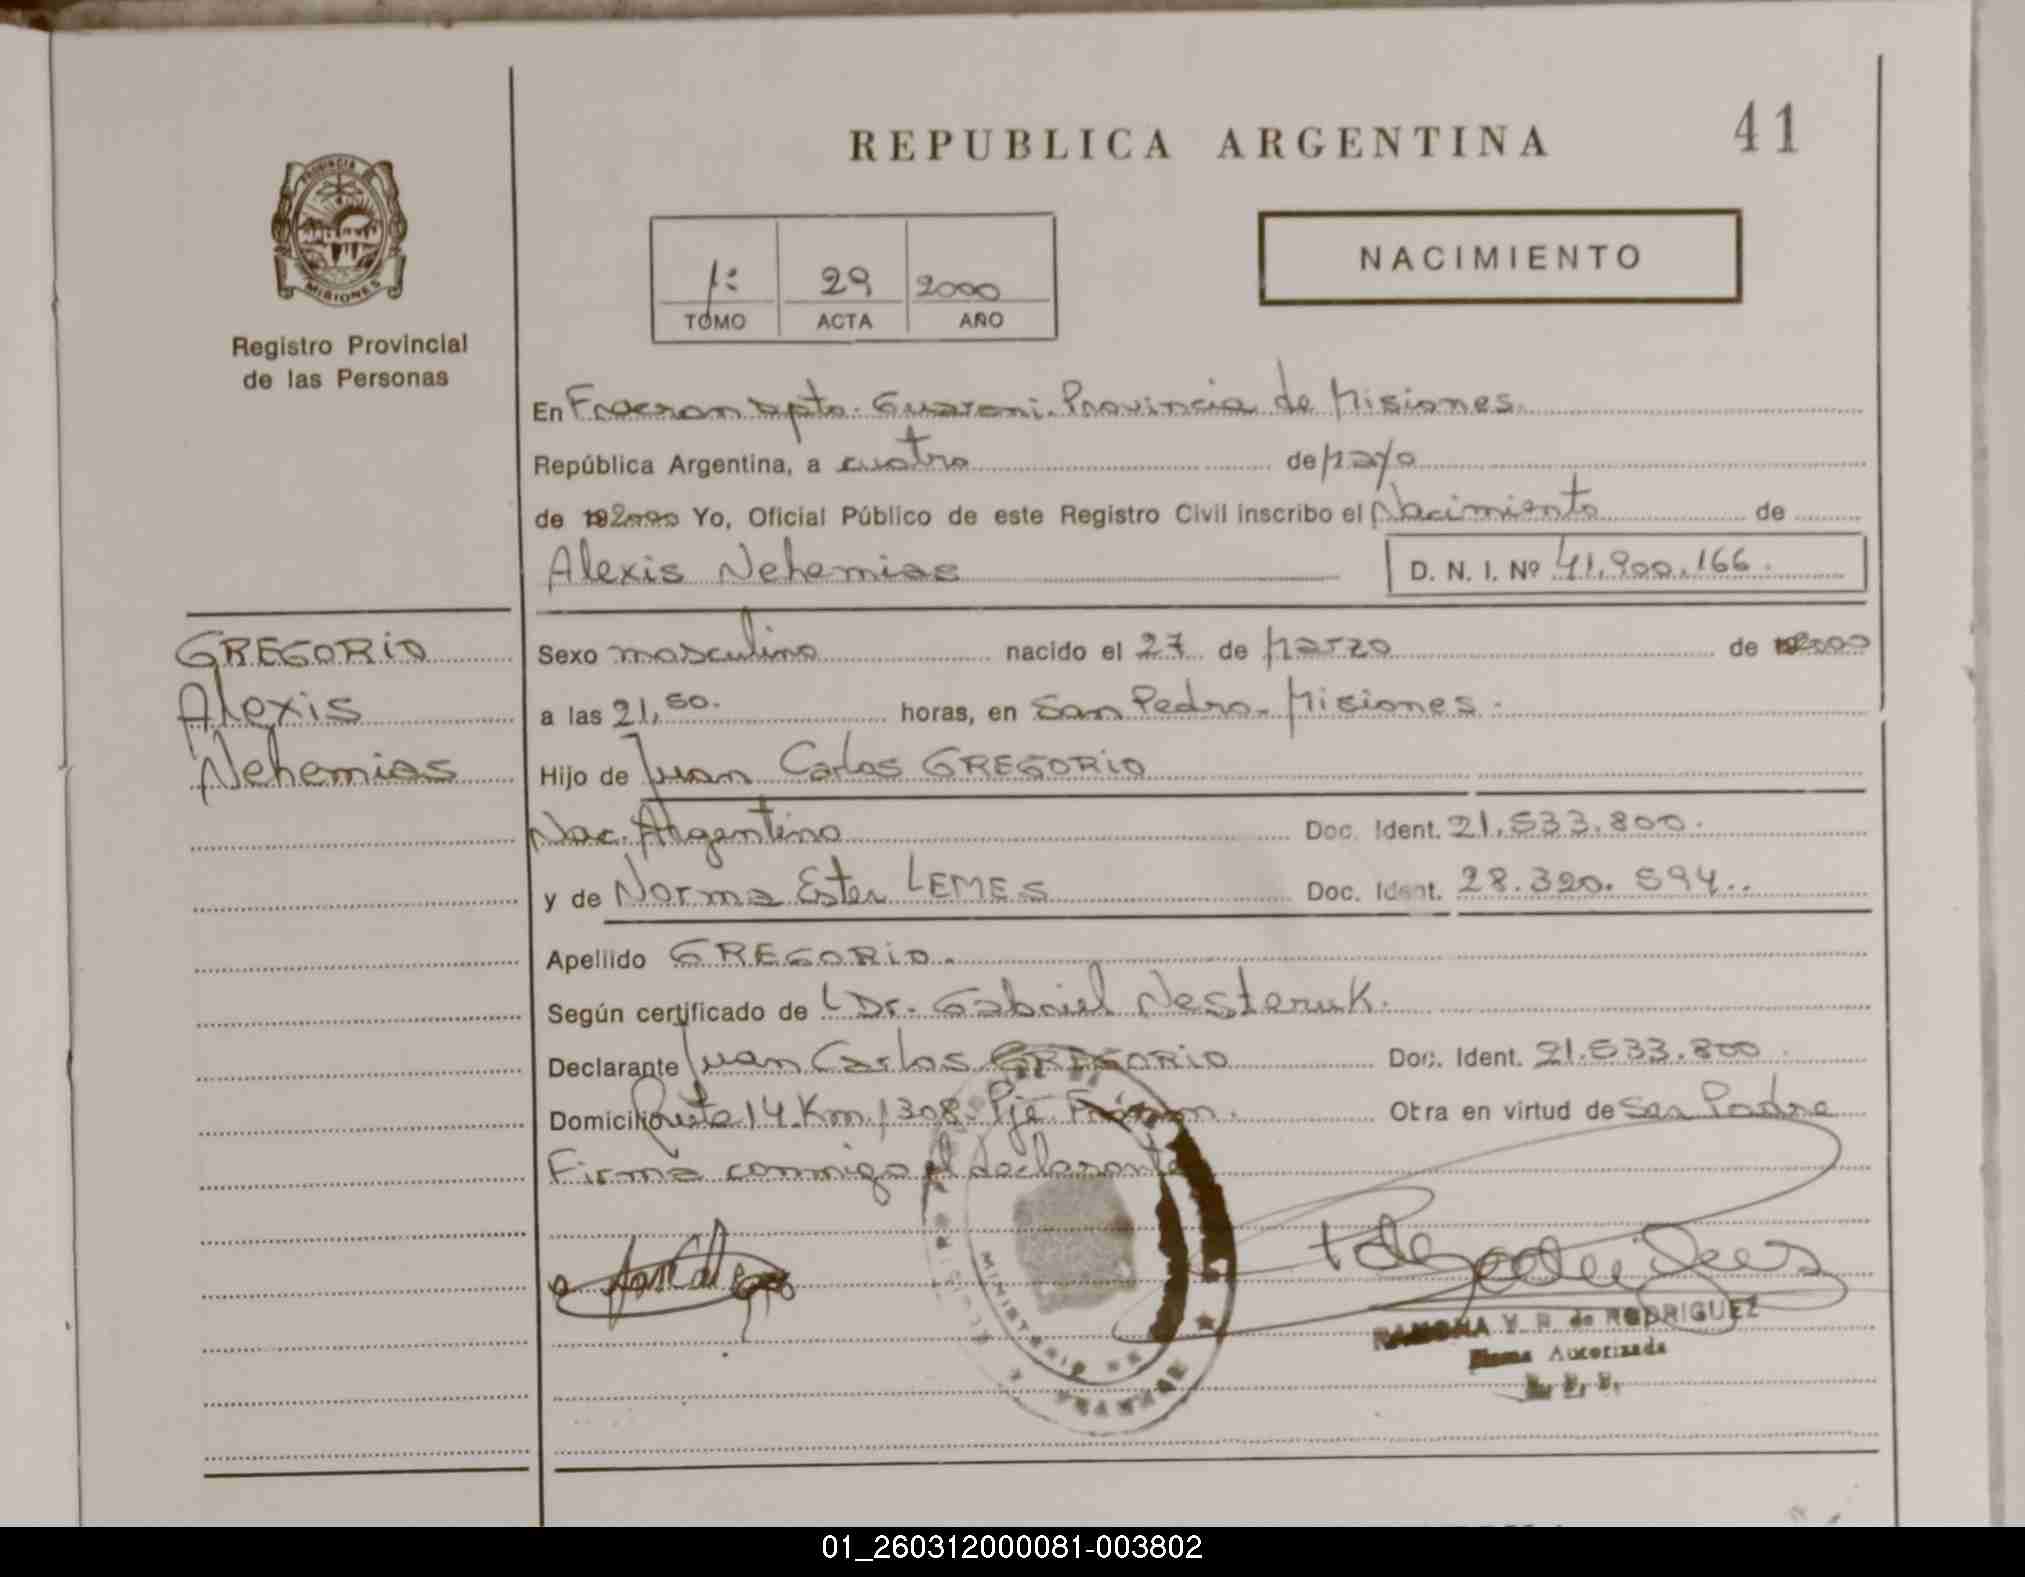 REPUBLICA ARGENTINA
41
PROVINCIA DE
MISIONES
Registro Provincial
de las Personas
1º 29 2000
TOMO ACTA AÑO
NACIMIENTO
En Fracran Dpto. Guarani. Provincia de Misiones
República Argentina, a cuatro de Mayo
de 2000 Yo, Oficial Público de este Registro Civil inscribo el Nacimiento de
Alexis Nehemias D. N. I. Nº 41.900.166.
GREGORIO
Alexis
Nehemias
Sexo masculino nacido el 27 de Marzo de 2000
a las 21,50. horas, en San Pedro. Misiones.
Hijo de Juan Carlos GREGORIO
Nac. Argentino Doc. Ident. 21.533.800.
y de Norma Ester LEMES Doc. Ident. 28.320.594..
Apellido GREGORIO.
Según certificado de Dr. Gabriel Nesteruk.
Declarante Juan Carlos GREGORIO Doc. Ident. 21.533.800
Domicilio Ruta 14. Km. 1308. Pje Fracran. Obra en virtud de
Firma conmigo el declarante
MINISTERIO
RAMONA V. R. de RODRIGUEZ
Firma Autorizada
01_260312000081-003802